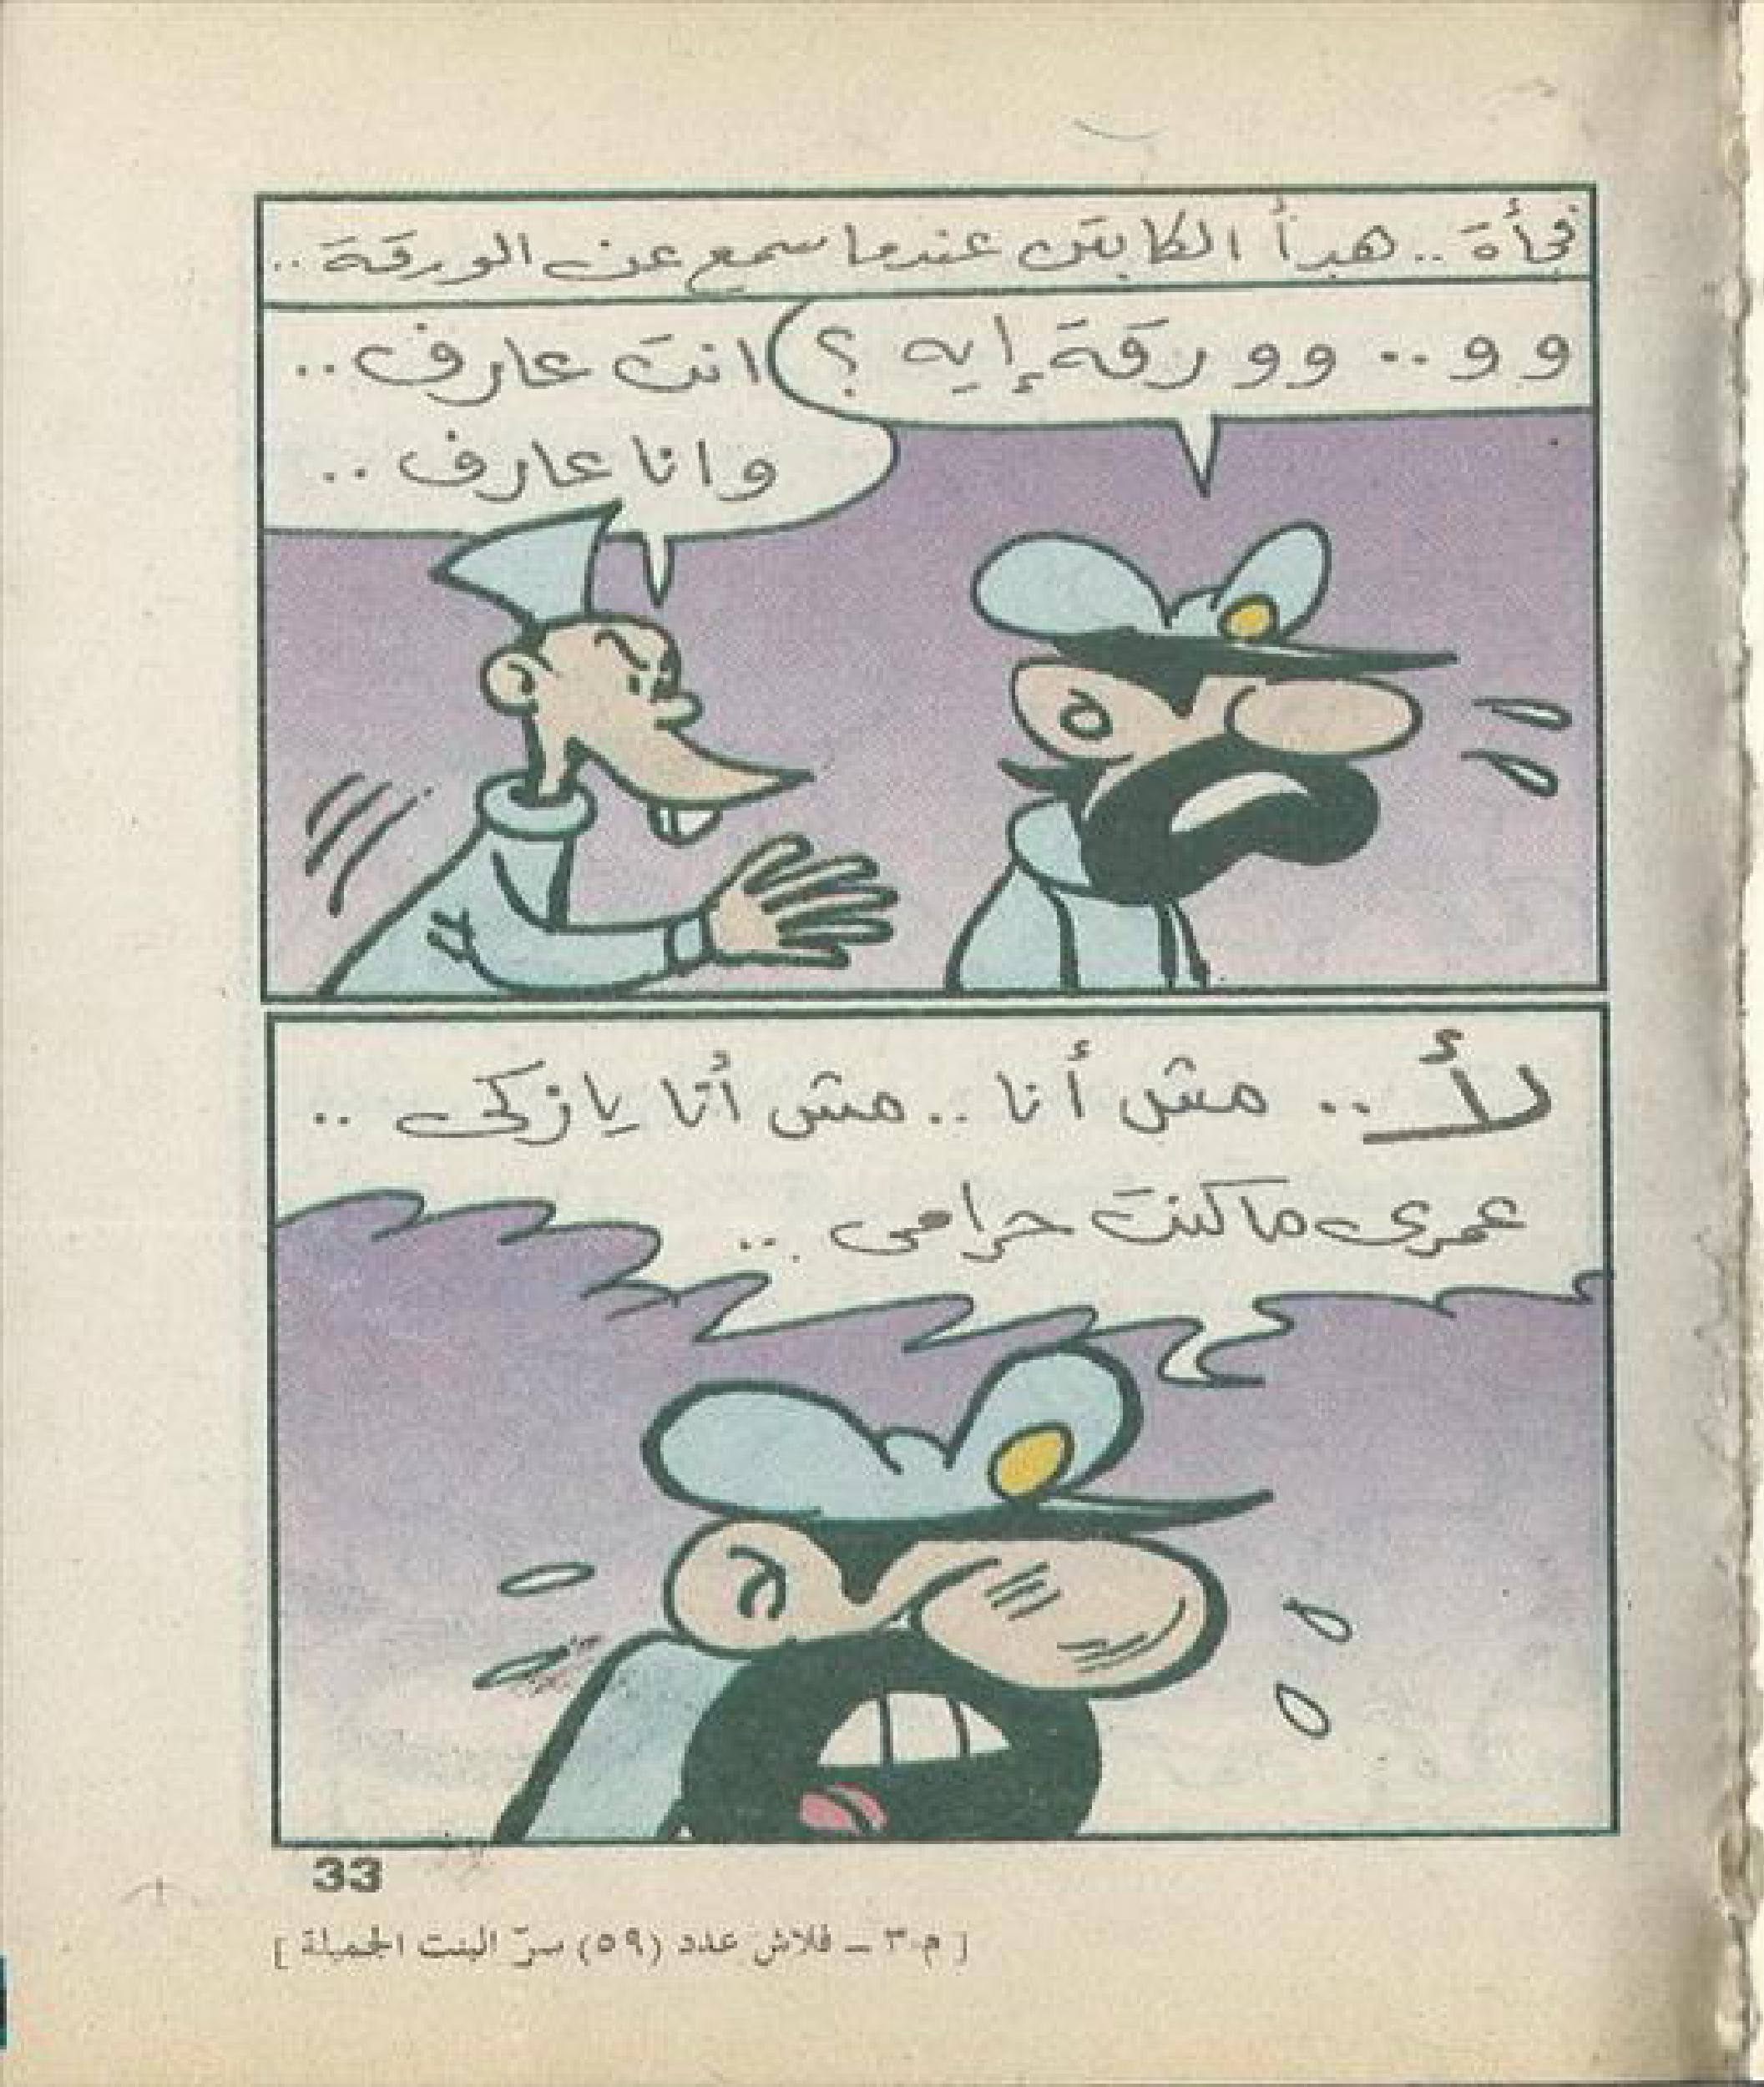 فجأة .. هدأ الكابتن عندما سمع عن الورقة ..
وو .. وورقة إيه ؟
انت عارف ..
وانا عارف ..
لأ .. مش أنا .. مش أنا يازكى ..
عمرى ماكنت حرامى ...
33
[ م ٣ ــ فلاش عدد (٥٩) سرّ البنت الجميلة ]